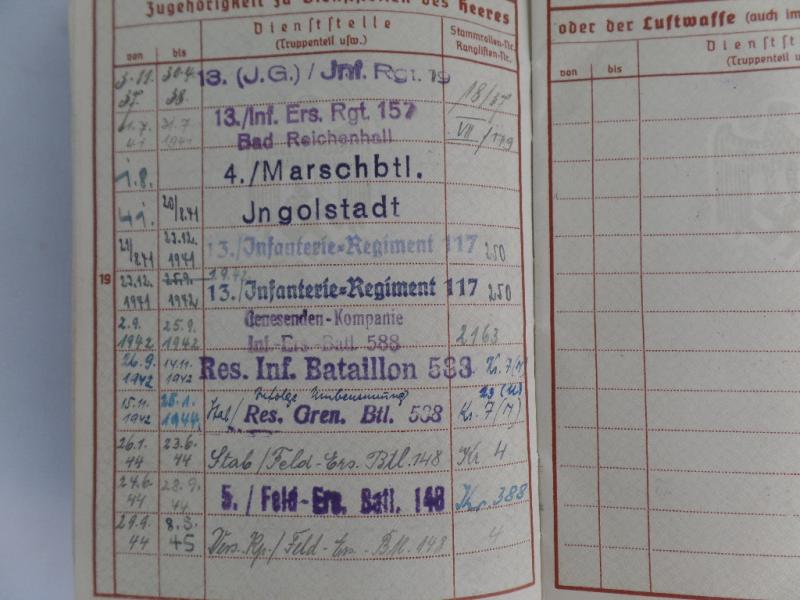 Zugehörigkeit zu Dienststellen des Heeres
von bis Dienststelle (Truppenteil usw.) Stammrollen-Nr. Ranglisten-Nr.
3.11. 37. 30.4. 38. 13. (J.G.) / Jnf. Rgt. 19 18/37
31.7. 1941 13./Inf. Ers. Rgt. 157 VII/
Bad Reichenhall
1.8. 4./Marschbtl.
41. 20/8.41 Jngolstadt
21/8.41 22.12. 1941 13./Infanterie=Regiment 117 250
19 22.12. 1941 25.9. 1942 1.9.42 13./Infanterie=Regiment 117 250
2.9. 1942 25.9. 1942 Genesenden-Kompanie
Inf.-Ers.-Batl. 588 2163
26.9. 1942 14.11. 1942 Res. Inf. Bataillon 588 Kr. 7(M)
infolge Umbenennung
15.11. 1942 25.1. 1944 Stab/ Res. Gren. Btl. 588 Kr. 7(M)
26.1. 44 23.6. 44 Stab/Feld-Ers. Btl. 148 Kr 4
24.6. 44 28.9. 44 5. / Feld-Ers. Batl. 148 Kr. 388
29.9. 44 8.3. 45 Vers. Kp./Feld-Ers.-Btl. 148 4
oder der Luftwaffe (auch im
von bis
(Truppenteil u